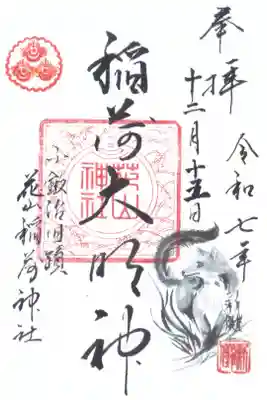 奉拝
令和七年
十二月十五日
稲荷大明神
小鍛冶旧蹟
花山稲荷神社
花山
神社